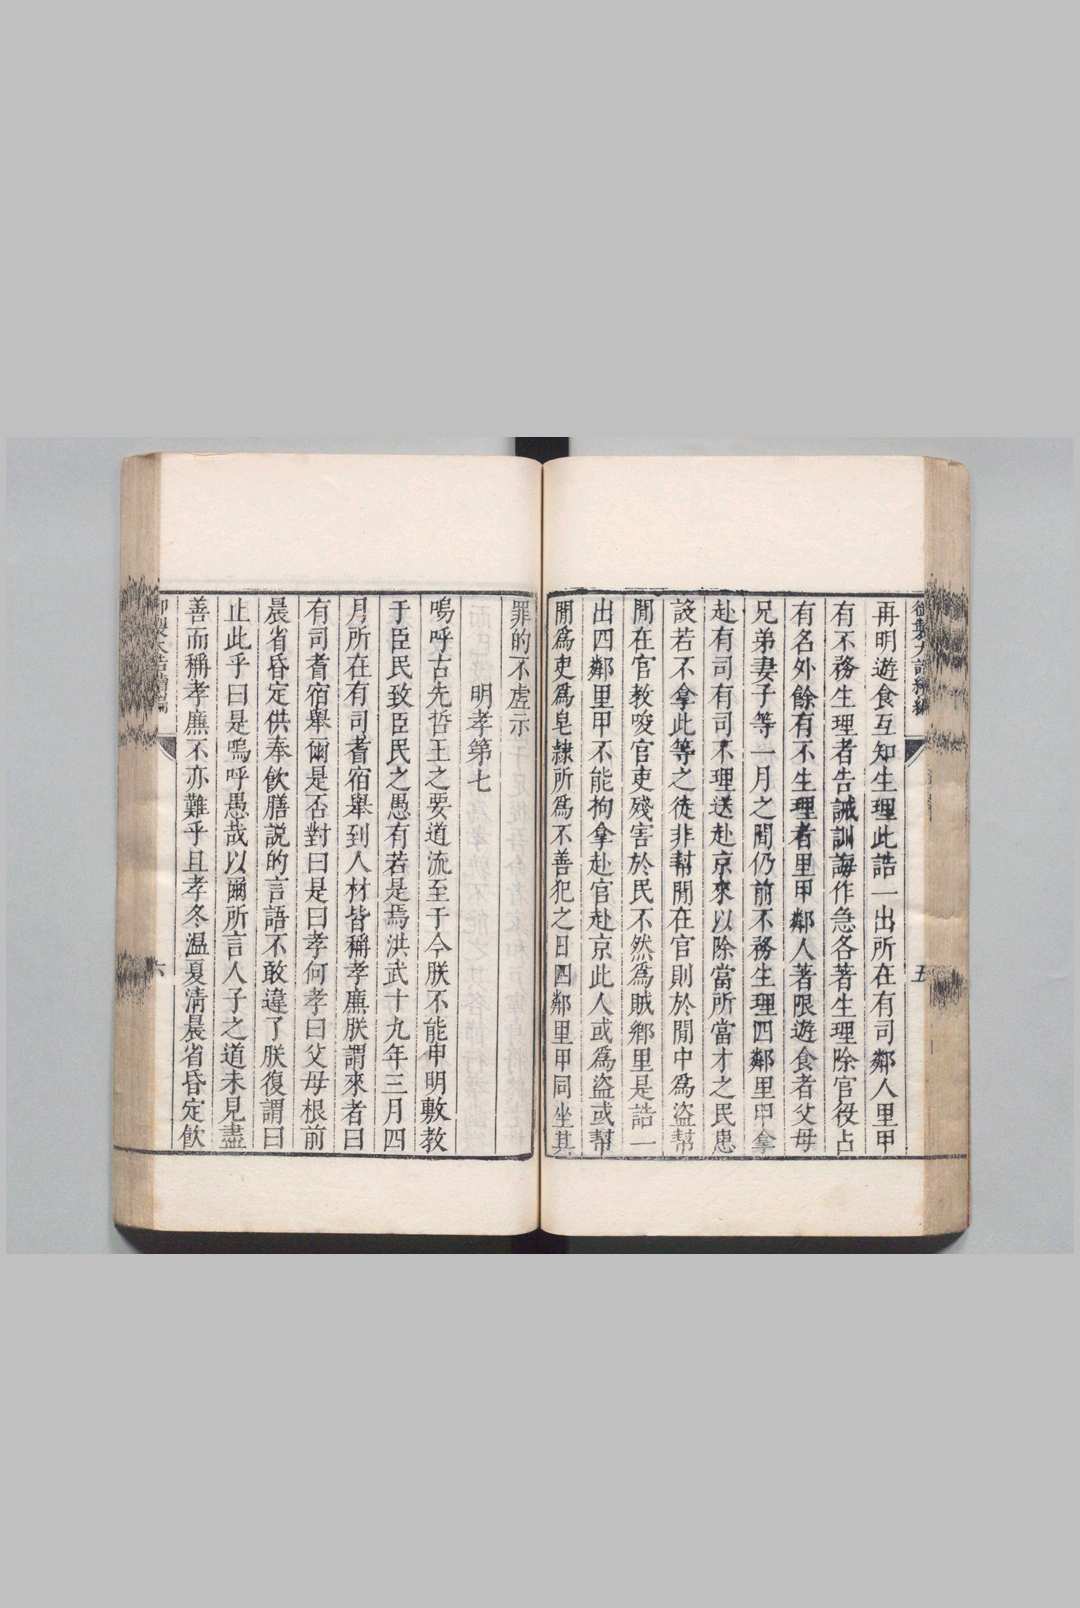 再明遊食互知生理此誥一出所在有司鄰人里甲
有不務生理者告誡訓誨作急各著生理除官役占
有名外餘有不生理者里甲鄰人著限遊食者父母
兄弟妻子等一月之閒仍前不務生理四鄰里甲拿
赴有司有司不理送赴京來以除當所當才之民患
設若不拿此等之徒非幫閒在官則於閒中爲盜幫
閒在官教唆官吏殘害於民不然爲賊鄉里是誥一
出四鄰里甲不能拘拿赴官赴京此人或爲盜或幫
閒爲吏爲皂隸所爲不善犯之日四鄰里甲同坐其
五
罪的不虛示
明孝第七
嗚呼古先哲王之要道流至于今朕不能申明敷教
于臣民致臣民之愚有若是焉洪武十九年三月四
月所在有司耆宿舉到人材皆稱孝廉朕謂來者曰
有司耆宿舉爾是否對曰是曰孝何孝曰父母根前
晨省昏定供奉飲膳説的言語不敢違了朕復謂曰
止此乎曰是嗚呼愚哉以爾所言人子之道未見盡
善而稱孝廉不亦難乎且孝冬溫夏凊晨省昏定飲
六